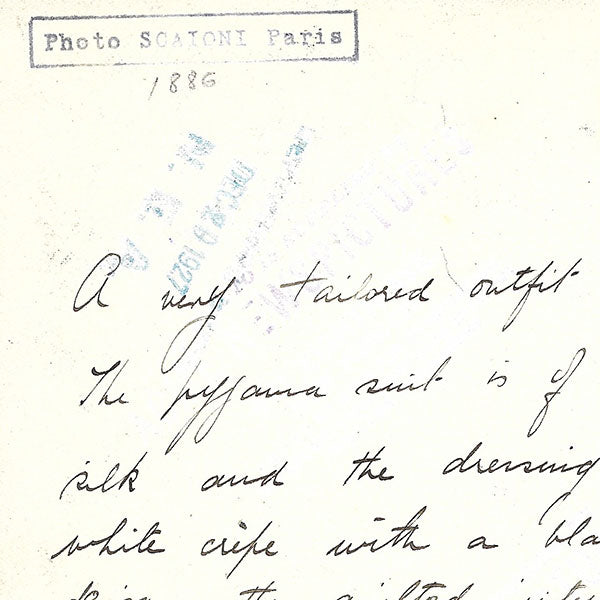 Photo SCAIONI Paris
1886
DEC 29 1927
A very tailored outfit
The pyjama suit is of
silk and the dressing
white crêpe with a bla
the quilted